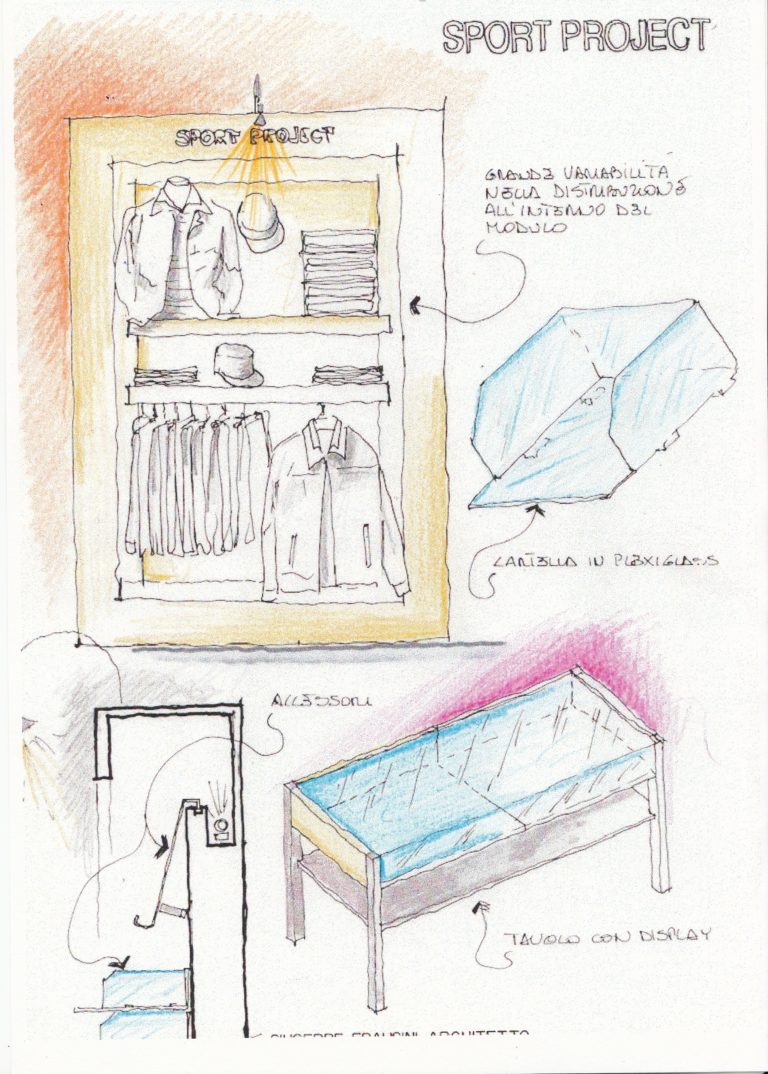 SPORT PROJECT
SPORT PROJECT
GRANDE VARIABILITÀ
NELLA DISTRIBUZIONE
ALL'INTERNO DEL
MODULO
CARTELLA IN PLEXIGLASS
ACCESSORI
TAVOLO CON DISPLAY
GIUSEPPE ARCHITETTO